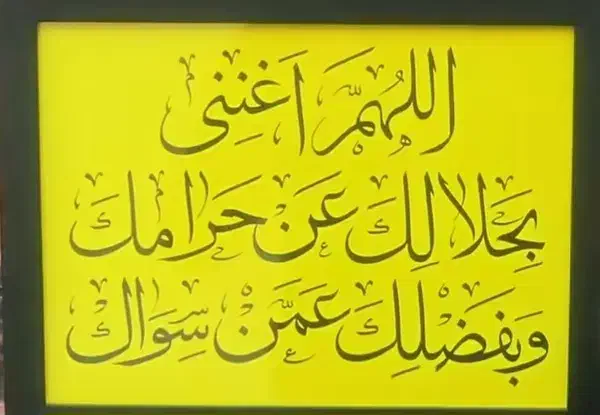 اللهُمَّ اَغنِنى
بِحَلالِكَ عَن حَرامِكَ
وَبفَضلِكَ عَمَّن سِوَاكَ